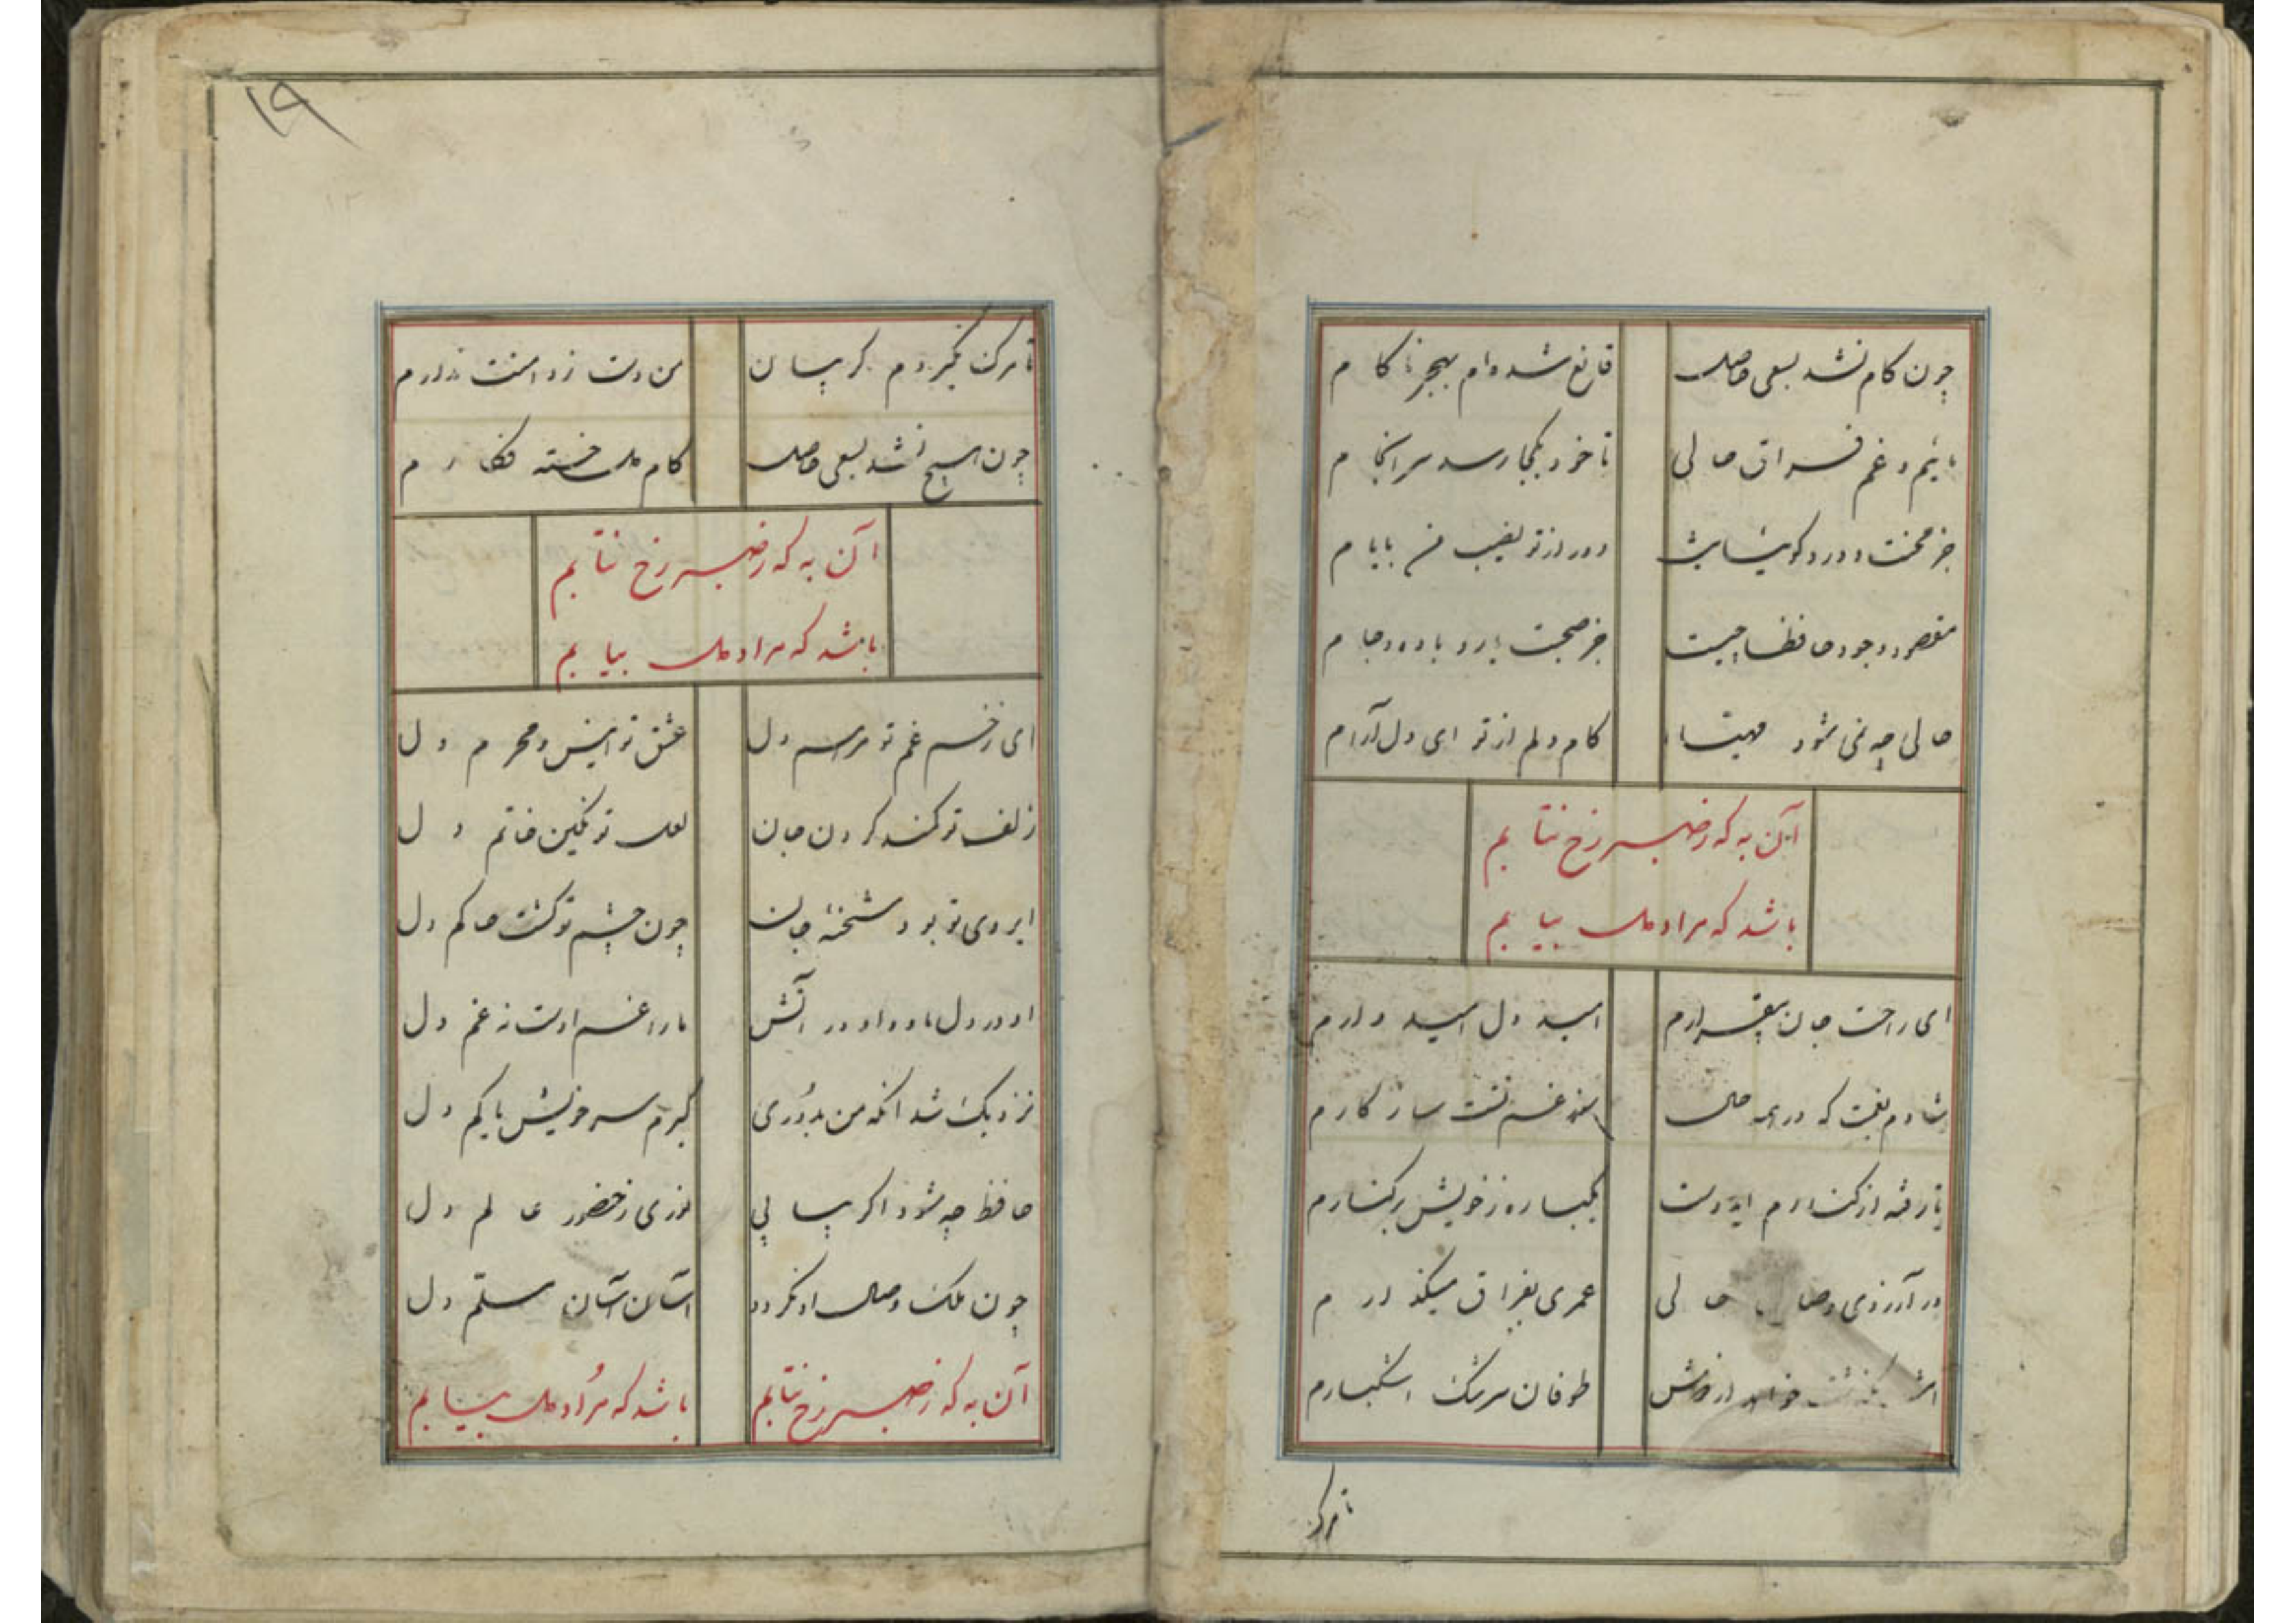 چون کام نشد بسعی حاصل قانع شده‌ام بهجر ناکام
مائیم و غم فراق حالی تا خود بکجا رسد سرانجام
جز محنت و درد کوئیا نیست دور از تو نصیب من بایام
مقصود وجود حافظا چیست جز صحبت یار و باده و جام
حالی چه نمی شود مهیا کام دلم از تو ای دل آرام
آن به که ز صبر رخ نتابم
باشد که مراد دل بیابم
ای راحت جان بیقرارم امید دل امیدوارم
شادم بغمت که در همه حال غم تست سازکارم
تا رفته از کنارم ایدوست یکباره ز خویش برکنارم
در آرزوی وصال حالی عمری بفراق میکذارم
خواهد از فرقش طوفان سرشک اشکبارم
تا مرک
۱۹
تا مرک نگیردم کریبان من دست ز دامنت ندارم
چون هیچ نشد بسعی حاصل کام دل خسته فکارم
آن به که ز صبر رخ نتابم
باشد که مراد دل بیابم
ای زخم غم تو مرهم دل عشق تو انیس و محرم دل
زلف تو کمند کردن جان لعل تو نکین خاتم دل
ابروی تو بود شحنهٔ جان چون چشم تو کشت حاکم دل
او در دل ما و او در آتش ما را غم اوست نه غم دل
نزدیک شد انکه من بدُوری کیرم سر خویش یا کم دل
حافظ چه شود اکر بیابی نوری ز حضور عالم دل
چون ملک وصال او نکردد آسان آسان مسلّم دل
آن به که ز صبر رخ نتابم باشد که مُراد دل بیابم